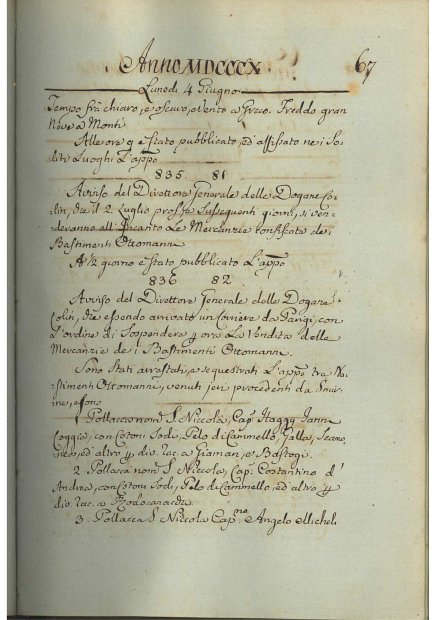 Anno MDCCCX
67
Lunedi 4 Giugno
Tempo frà chiaro, e oscuro, e Vento a Greco. Freddo gran
Neve à Monti
Alle ore 9 è Stato pubblicato, ed' affissato nei So-
liti Luoghi L'app.o
835 81
Avviso del Direttore Generale delle Dogane Co-
liti, che il 2 Luglio pross.o Susseguenti giorni, si ven-
deranno all' Incanto Le Mercanzie confiscate dei
Bastimenti Ottomanni
A ½ giorno è Stato pubblicato L'app.o
836 82
Avviso del Direttore Generale delle Dogane
Coliti, che essendo arrivato un Corriere da Parigi con
L'ordine di Sospendere p ora La Vendita delle
Mercanzie dei Bastimenti Ottomanni.
Sono Stati arrestati, e sequestrati L'app.e tre Ba-
stimenti Ottomanni, venuti jeri procedenti da Smir-
ne, e sono
1. Pollacca nom. S. Niccolà, Cap. Haggy Jann
Coggia, con Cotoni Sodi, Pelo di Cammello, Galla,
ed' altro p div. rac. a Giaman, e Bastogi.
2. Pollacca nom. S. Niccola, Cap. Costantino d'
Andrea, con Cotoni Sodi, Pelo di Cammello, ed' altro p
div. rac. a Rodocanacchi
3. Pollacca S. Niccola Cap.no Angelo Michel.